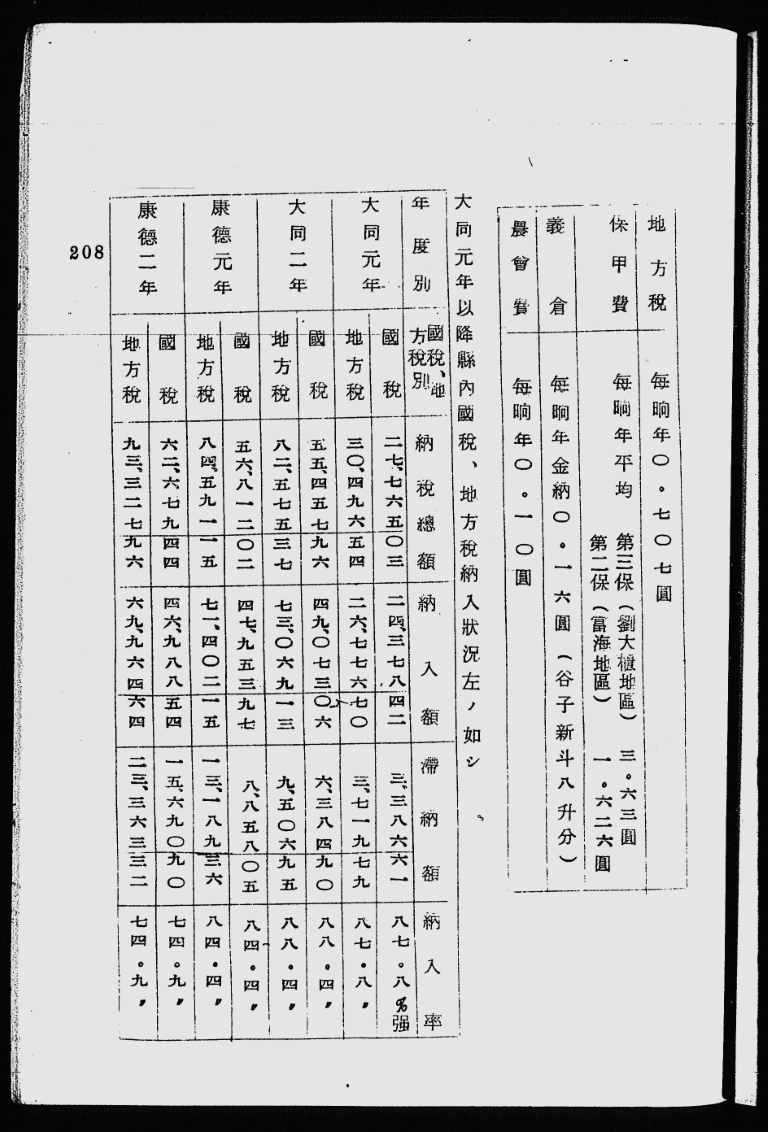 地方稅 每晌年〇。七〇七圓
保甲費 每晌年平均 第三保(劉大櫃地區) 三。六三圓
第二保(富海地區) 一。六二六圓
義倉 每晌年金納〇。一六圓(谷子新斗八升分)
農會費 每晌年〇。一〇圓
大同元年以降縣內國稅、地方稅納入狀況左ノ如シ。
年度別 國稅、地方稅別 納稅總額 納入額 滯納額 納入率
大同元年 國稅 二七、七六五〇三 二四、三七八四二 三、三八六六一 八七。八%强
地方稅 三〇、四九六五四 二六、七七六七〇 三、七一九七九 八七。八〃
大同二年 國稅 五五、四五七九六 四九、〇七三〇六 六、三八四九〇 八八。四〃
地方稅 八二、五七五三七 七三、〇六九一三 九、五〇六九五 八八。四〃
康德元年 國稅 五六、八一二〇二 四七、九五三九七 八、八五八〇五 八四。四〃
地方稅 八四、五九一一五 七一、四〇二一五 一三、一八九三六 八四。四〃
康德二年 國稅 六二、六七九四四 四六、九八八五四 一五、六九〇九〇 七四。九〃
地方稅 九三、三二七九六 六九、九六四六四 二三、三六三三二 七四。九〃
208